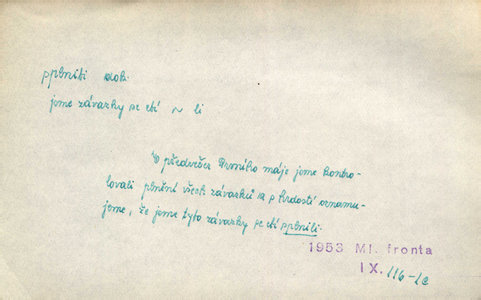 splniti dok.
jsme závazky se ctí ~ li
V předvečer Prvního máje jsme kontro-
lovali plnění všech závazků a s hrdostí oznamu-
jeme, že jsme tyto závazky se ctí splnili.
1953 Ml. fronta
IX. 116-1c